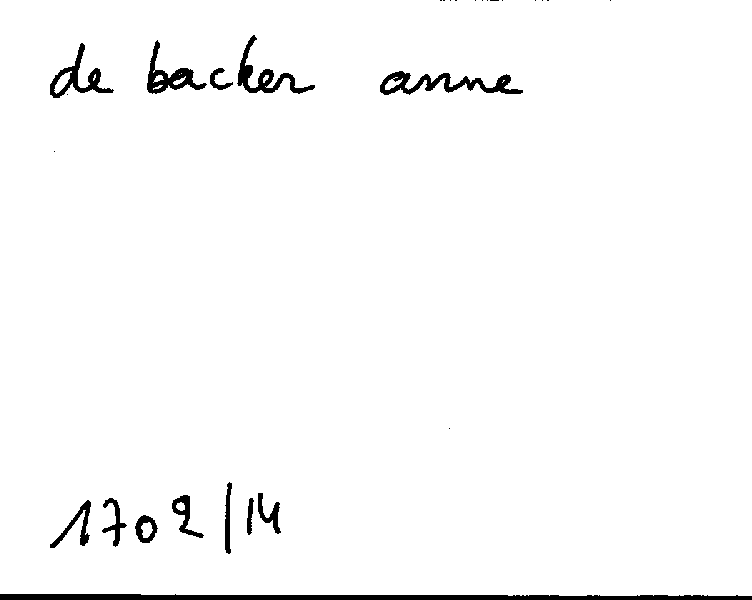 de backer anne
1702/14